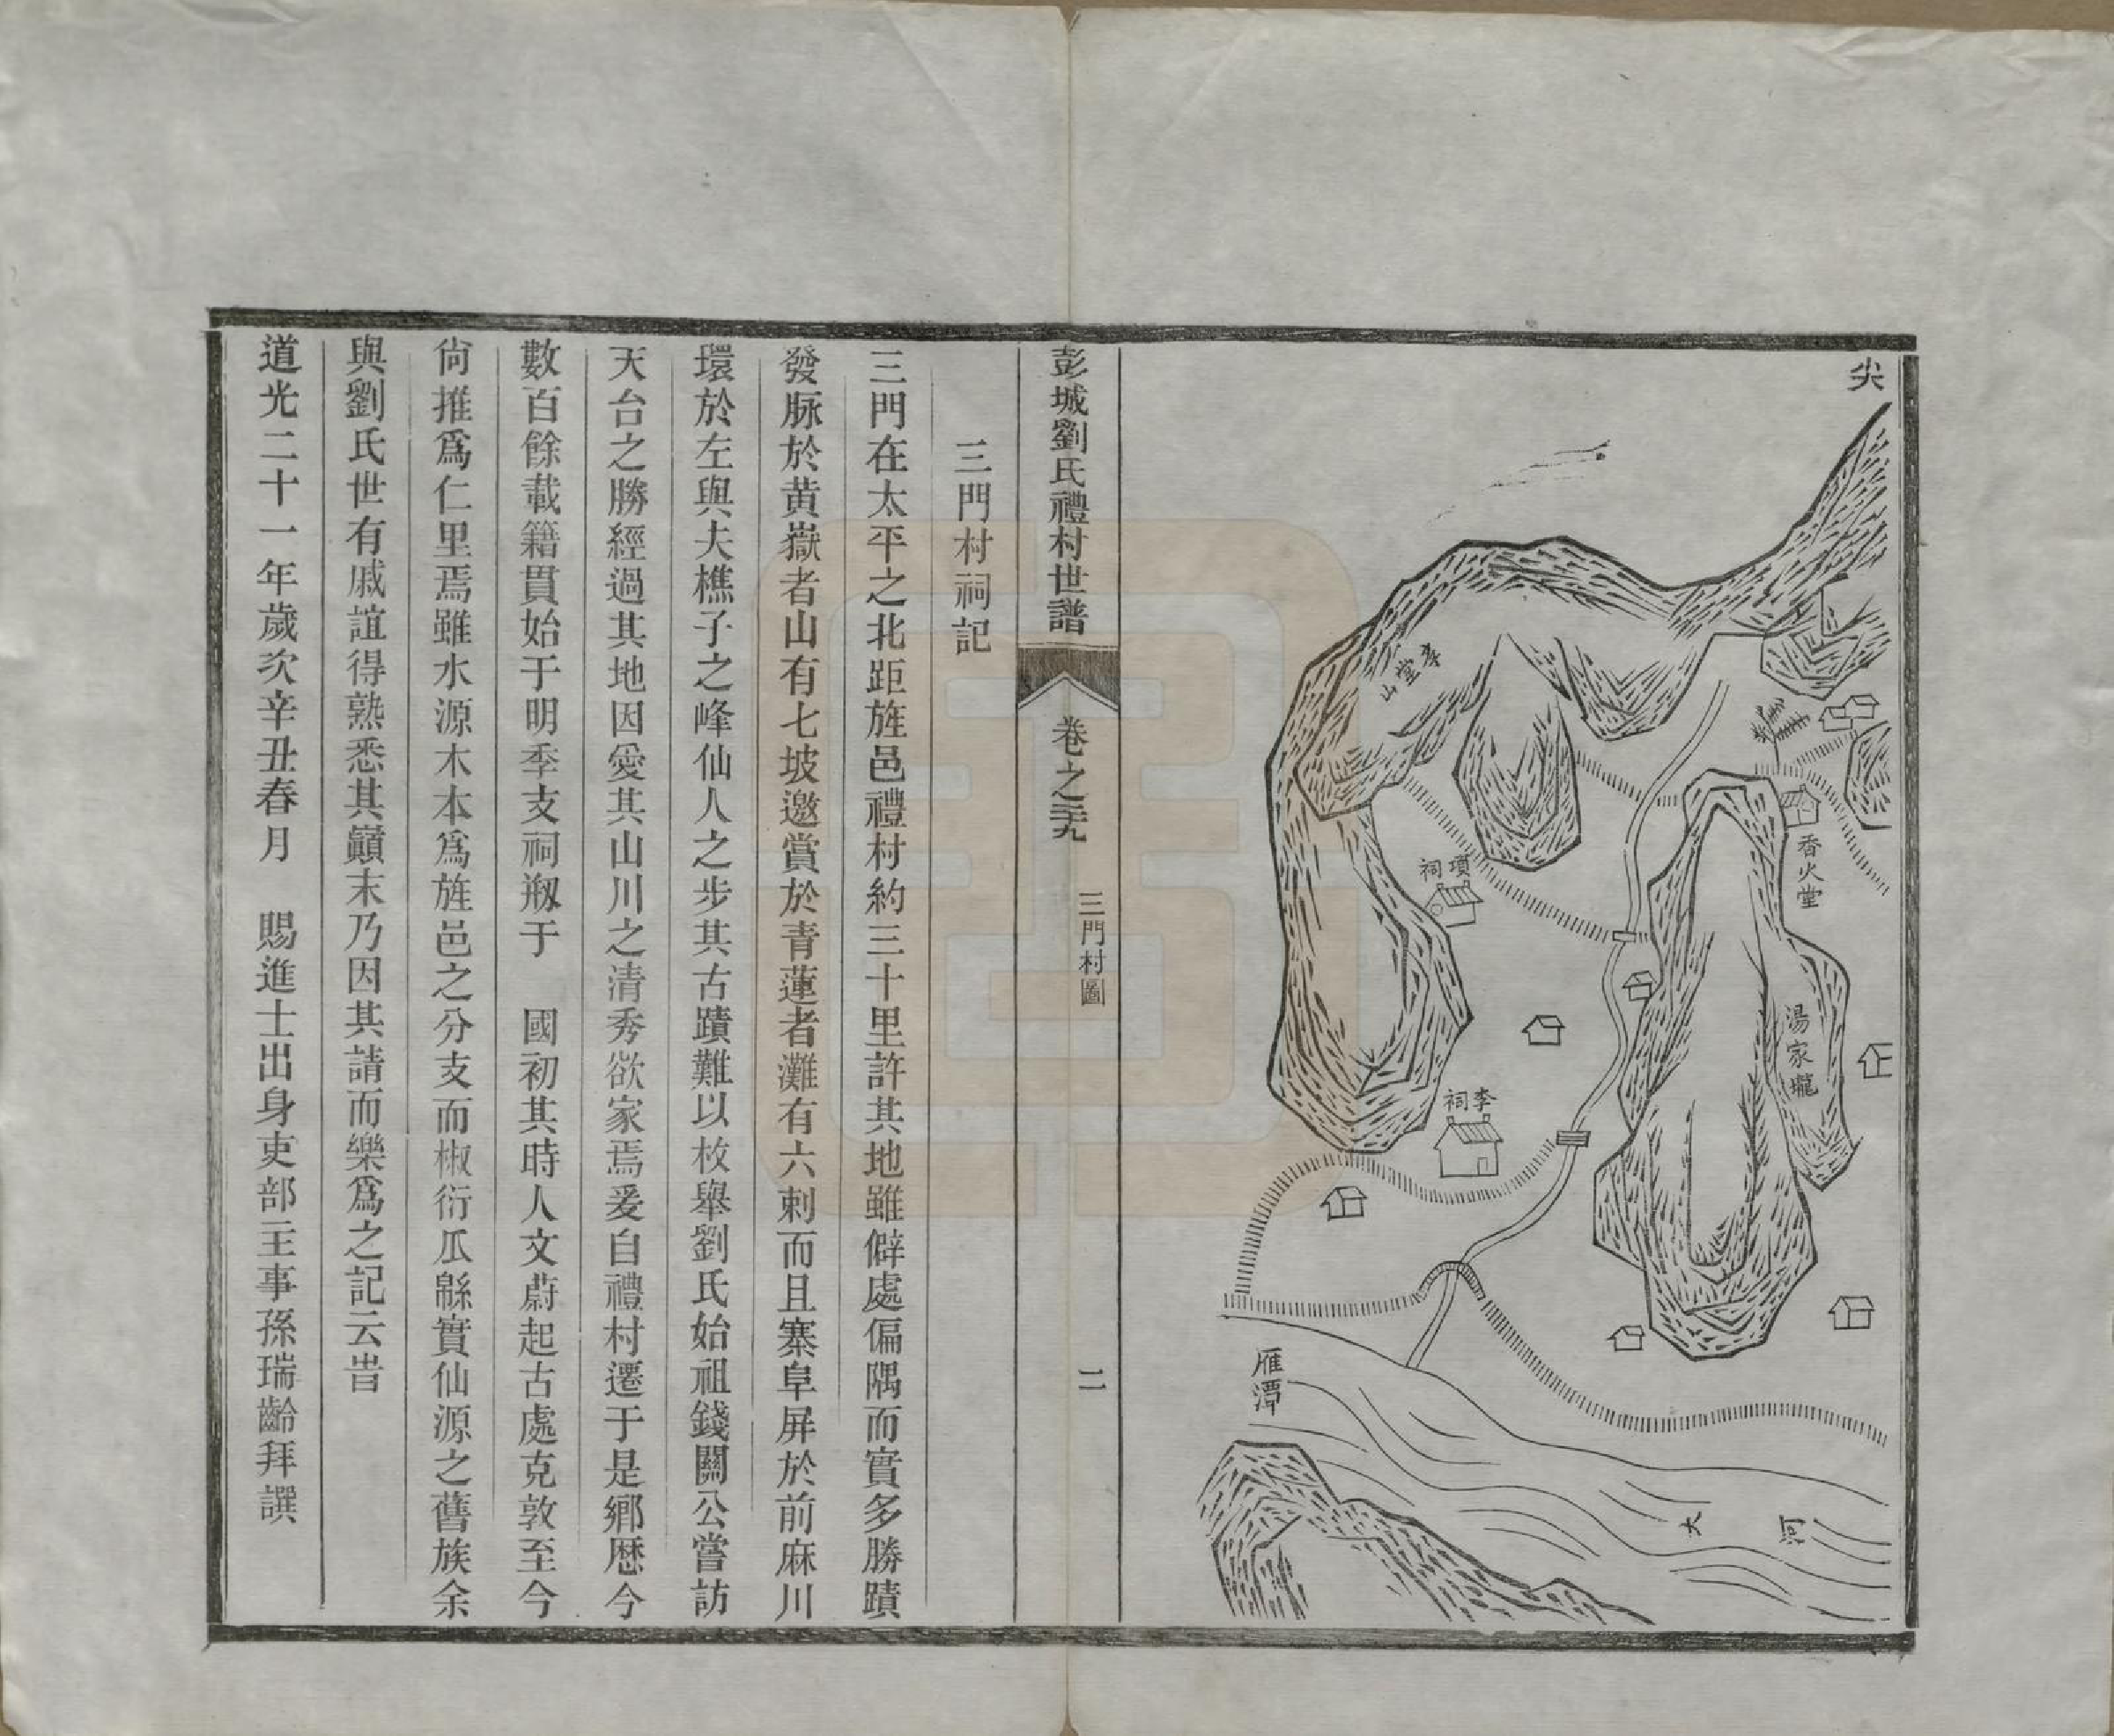 尖
李堂山
香火堂
項祠
湯家壠
李祠
雁潭
大河
彭城劉氏禮村世譜
卷之
三門村圖
二
三門村祠記
三門在太平之北距旌邑禮村約三十里許其地雖僻處偏隅而實多勝蹟
發脉於黄嶽者山有七坡邀賞於青蓮者灘有六剌而且寨阜屏於前麻川
環於左與夫樵子之峰仙人之步其古蹟難以枚舉劉氏始祖錢關公嘗訪
天台之勝經過其地因愛其山川之清秀欲家焉爰自禮村遷于是鄉歷今
數百餘載籍貫始于明季支祠剏于　國初其時人文蔚起古處克敦至今
尙推爲仁里焉雖水源木本爲旌邑之分支而椒衍瓜緜實仙源之舊族余
與劉氏世有戚誼得熟悉其巔末乃因其請而樂爲之記云旹
道光二十一年歲次辛丑春月　賜進士出身吏部主事孫瑞齡拜譔